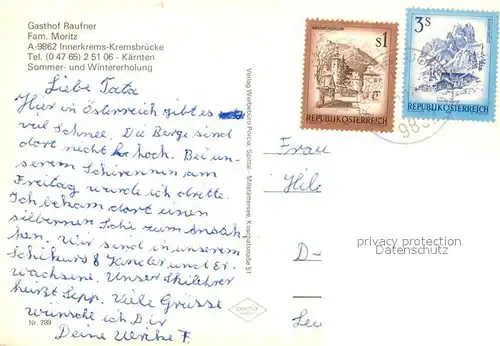 Gasthof Raufner
Fam. Moritz
A-9862 Innerkrems-Kremsbrücke
Tel. (0 47 65) 2 51 06 - Kärnten
Sommer- und Wintererholung
Liebe Tata
Hier in Österreich gibt es
viel Schnee. Die Berge sind
dort nicht hoch. Bei un-
serem Schirennen am
Freitag wurde ich dritte.
Ich bekam dort einen
silbernen Schi zum Anstek-
ken. Wir sind in unserem
Schikurs 8 Kinder und Er-
wachsene. Unser Skilehrer
heißt Sepp. Viele Grüsse
wünsche ich Dir
Deine Ulrike F.
Nr. 789
Verlag Werbebuch Porcia, Spittal - Millstättersee, Koschatstraße 51
s1
REPUBLIK ÖSTERREICH
3s
REPUBLIK ÖSTERREICH
Frau
Hilc
D-
Leu
privacy protection
Datenschutz